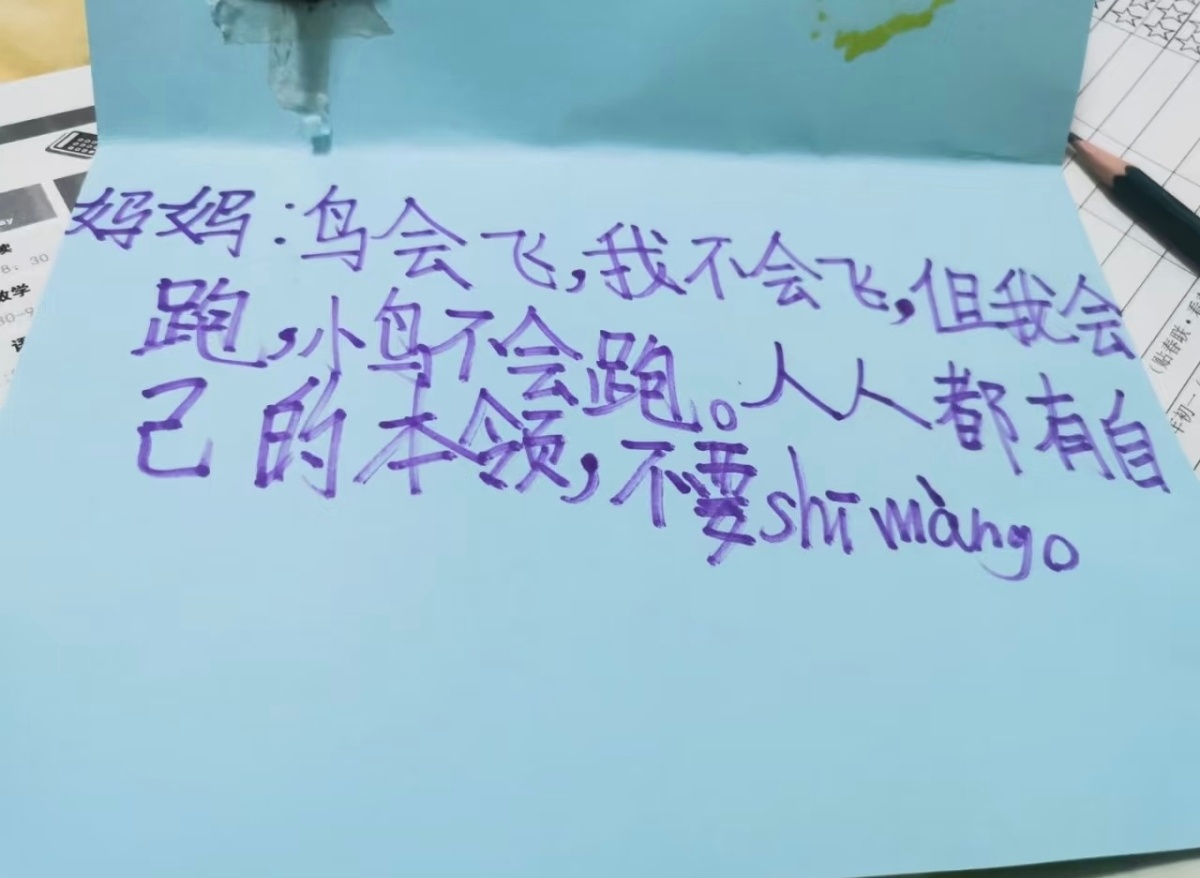 妈妈:鸟会飞,我不会飞,但我会
跑,小鸟不会跑。人人都有自
己的本领,不要shīmàng。
8:30
数学
(贴春联·
年初一